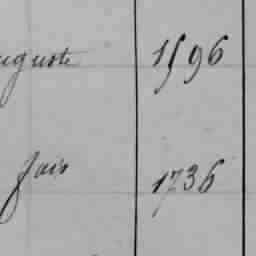 uguste 1596
Jair 1736